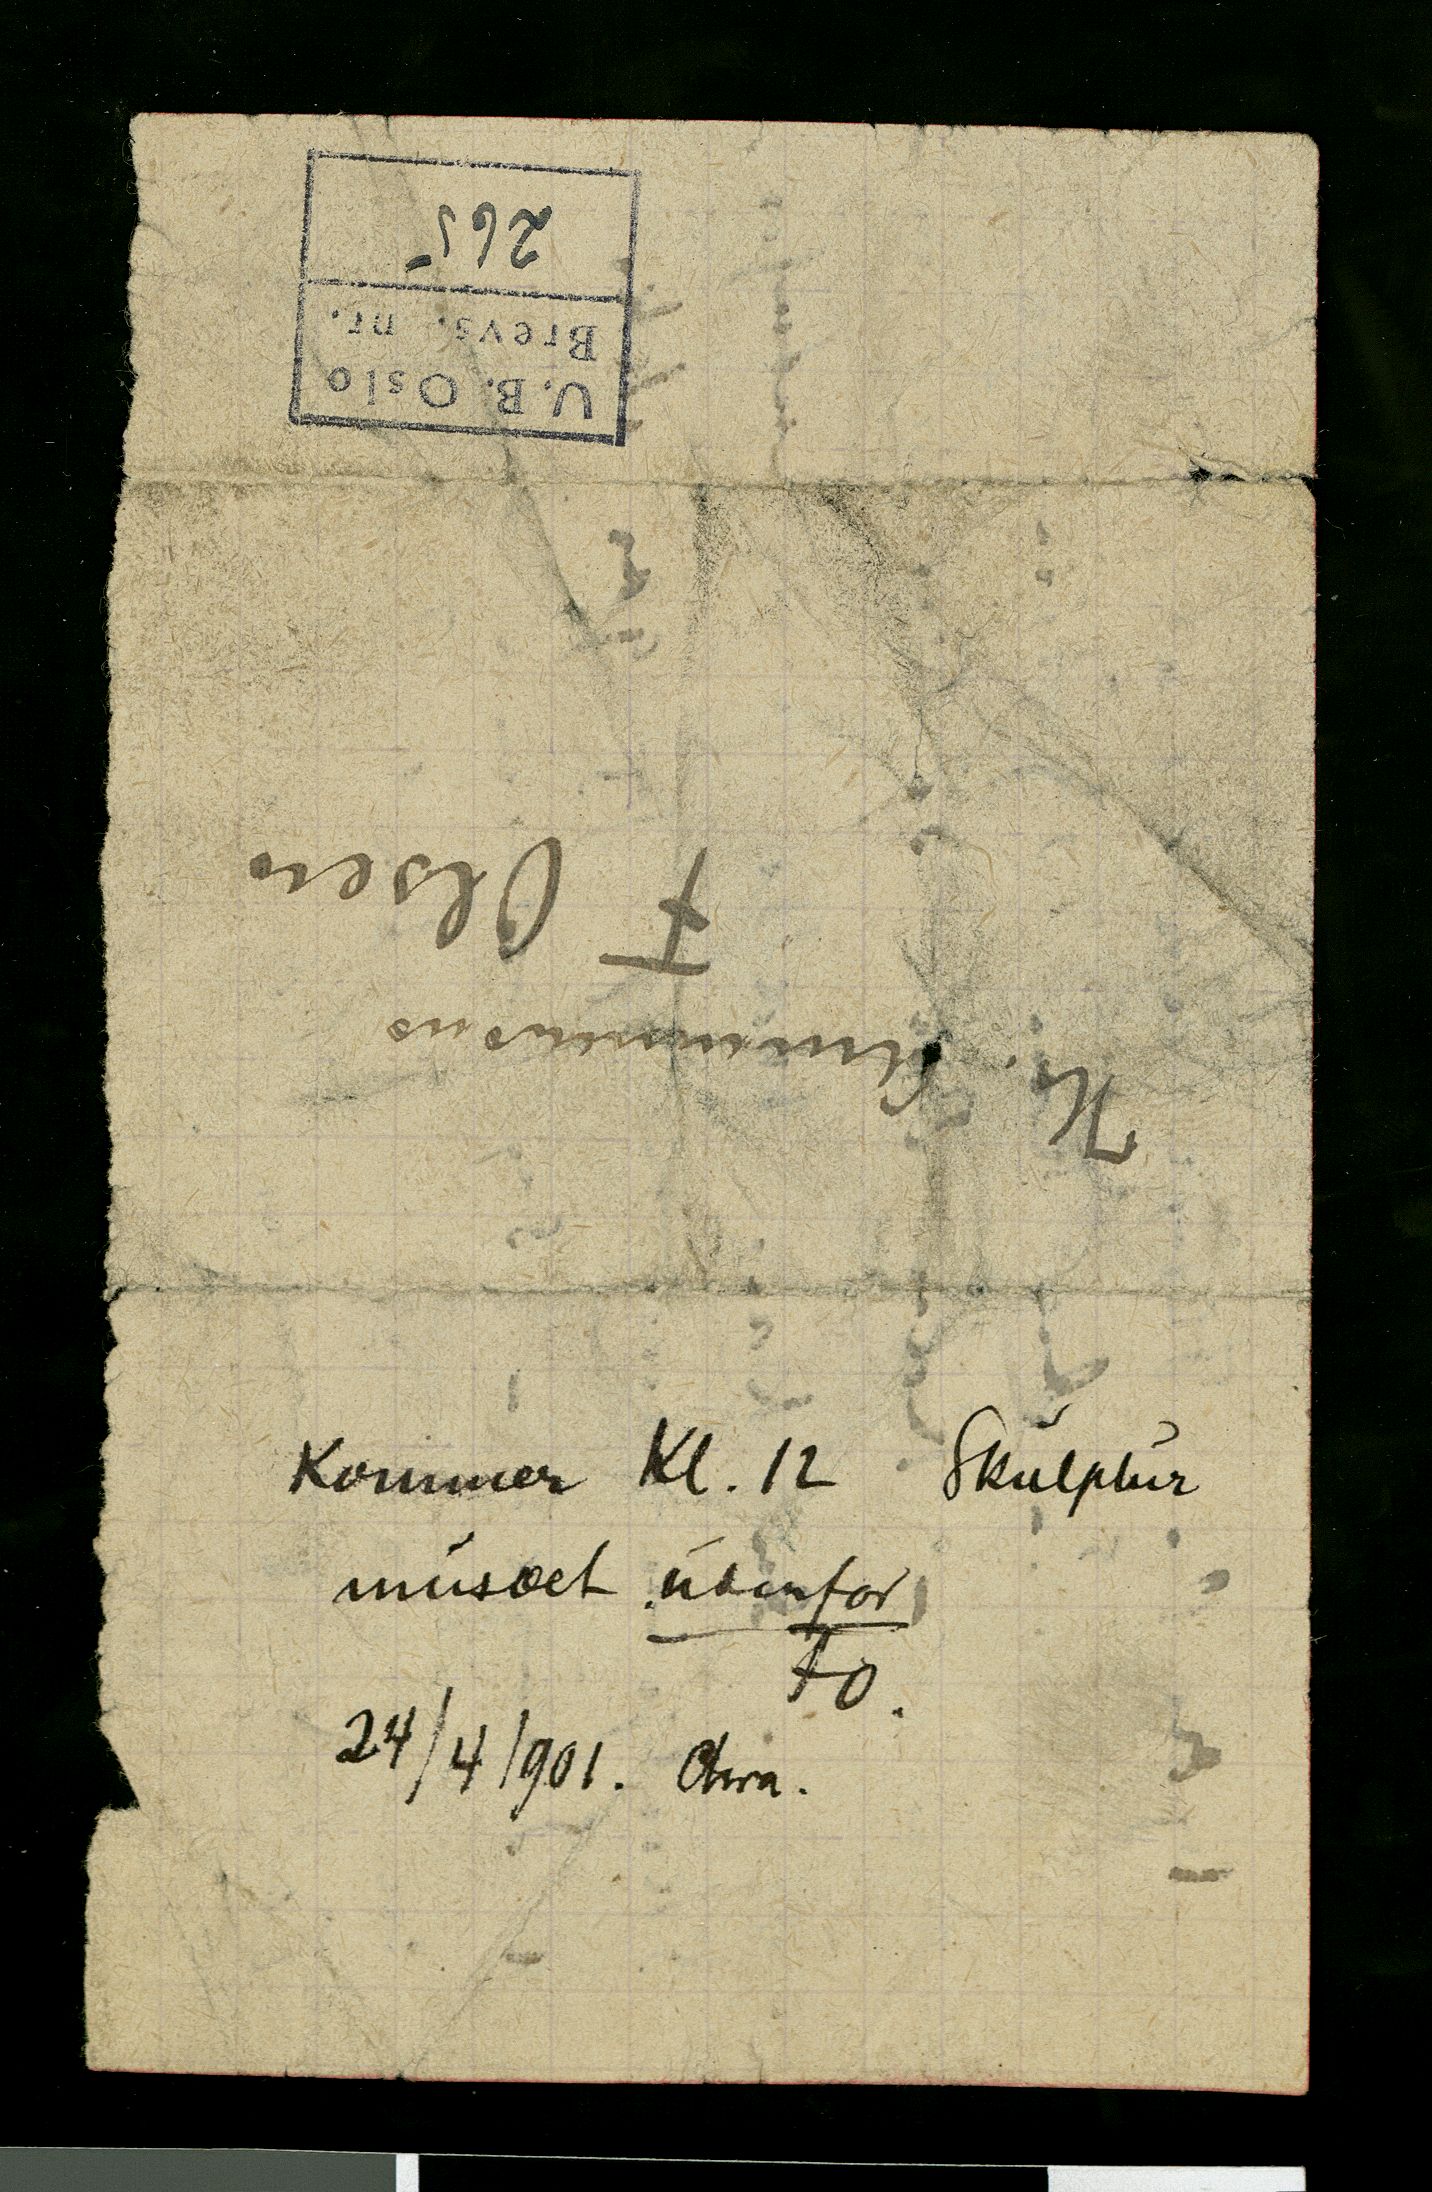 U.B. Oslo
Brevs. nr.
265
Hr.
F Olsen
Kommer Kl. 12 Skulptur
museet udenfor
FO.
24/4/901. Chra.